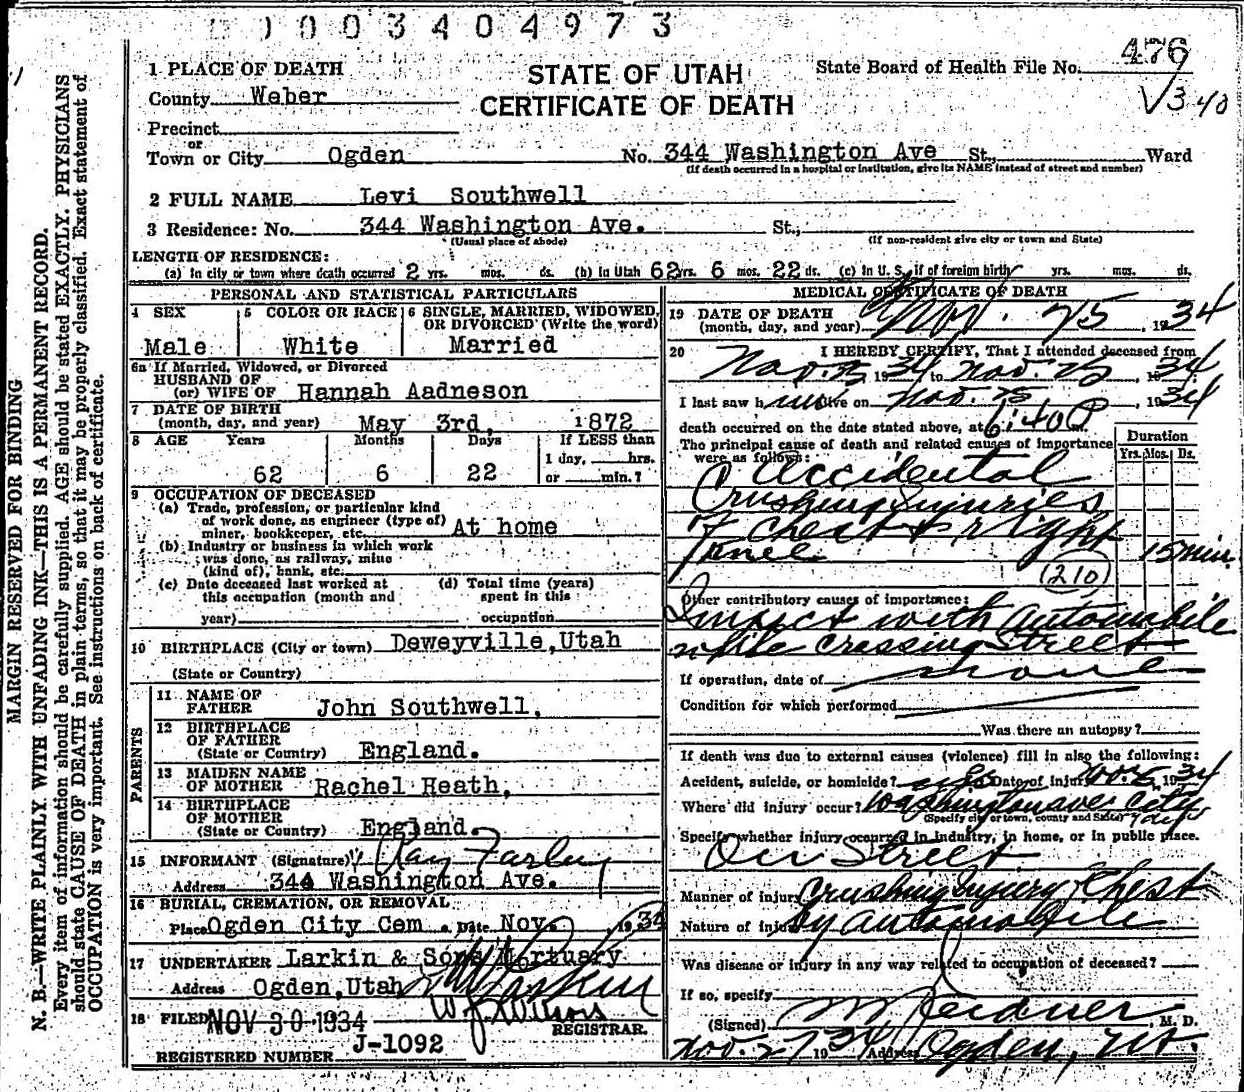 0003404973
1 PLACE OF DEATH
STATE OF UTAH
CERTIFICATE OF DEATH
State Board of Health File No. 476
√3 40
County Weber
Precinct
or
Town or City Ogden No. 344 Washington Ave St., Ward
(If death occurred in a hospital or institution, give its NAME instead of street and number)
2 FULL NAME Levi Southwell
3 Residence: No. 344 Washington Ave. St.,
(Usual place of abode) (If non-resident give city or town and State)
LENGTH OF RESIDENCE:
(a) In city or town where death occurred 2 yrs. mos. ds. (b) in Utah 62 yrs. 6 mos. 22 ds. (c) in U. S. if of foreign birth yrs. mos. ds.
PERSONAL AND STATISTICAL PARTICULARS
4 SEX
Male
5 COLOR OR RACE
White
6 SINGLE, MARRIED, WIDOWED, OR DIVORCED (Write the word)
Married
6a If Married, Widowed, or Divorced
HUSBAND OF
(or) WIFE OF Hannah Aadneson
7 DATE OF BIRTH
(month, day, and year) May 3rd, 1872
8 AGE Years Months Days If LESS than
62 6 22 1 day, hrs.
or min.?
9 OCCUPATION OF DECEASED
(a) Trade, profession, or particular kind
of work done, as engineer (type of)
miner, bookkeeper, etc. At home
(b) Industry or business in which work
was done, as railway, mine
(kind of), bank, etc.
(c) Date deceased last worked at
this occupation (month and
year)
(d) Total time (years)
spent in this
occupation
10 BIRTHPLACE (City or town) Deweyville, Utah
(State or Country)
PARENTS
11 NAME OF
FATHER John Southwell,
12 BIRTHPLACE
OF FATHER
(State or Country) England.
13 MAIDEN NAME
OF MOTHER Rachel Heath,
14 BIRTHPLACE
OF MOTHER
(State or Country) England.
15 INFORMANT (Signature) Ray Farley
Address 344 Washington Ave.
16 BURIAL, CREMATION, OR REMOVAL
Place Ogden City Cem. Date Nov. 1934
17 UNDERTAKER Larkin & Sons Mortuary
Address Ogden, Utah
18 FILED NOV 30 1934
REGISTRAR.
REGISTERED NUMBER J-1092
MEDICAL CERTIFICATE OF DEATH
19 DATE OF DEATH
(month, day, and year) Nov. 25, 1934
20 I HEREBY CERTIFY, That I attended deceased from
Nov. 25 1934 to Nov. 25, 1934
I last saw him alive on Nov. 25, 1934
death occurred on the date stated above, at 6:40 P
The principal cause of death and related causes of importance
were as follows:
Duration
Yrs. Mos. Ds.
Accidental
Crushing Injuries
of chest & right
15 min.
(210)
Other contributory causes of importance:
Impact with automobile
while crossing Street
If operation, date of none
Condition for which performed
Was there an autopsy?
If death was due to external causes (violence) fill in also the following:
Accident, suicide, or homicide? Date of injury Nov. 25, 1934
Where did injury occur? Washington ave City
(Specify city or town, county and State)
Specify whether injury occurred in industry, in home, or in public place.
On Street
Manner of injury Crushing Injury Chest
Nature of injury by automobile
Was disease or injury in any way related to occupation of deceased?
If so, specify
(Signed) , M. D.
Nov. 27 1934 Address Ogden, Ut.
MARGIN RESERVED FOR BINDING
N. B.—WRITE PLAINLY, WITH UNFADING INK—THIS IS A PERMANENT RECORD.
Every item of information should be carefully supplied. AGE should be stated EXACTLY. PHYSICIANS
should state CAUSE OF DEATH in plain terms, so that it may be properly classified. Exact statement of
OCCUPATION is very important. See instructions on back of certificate.